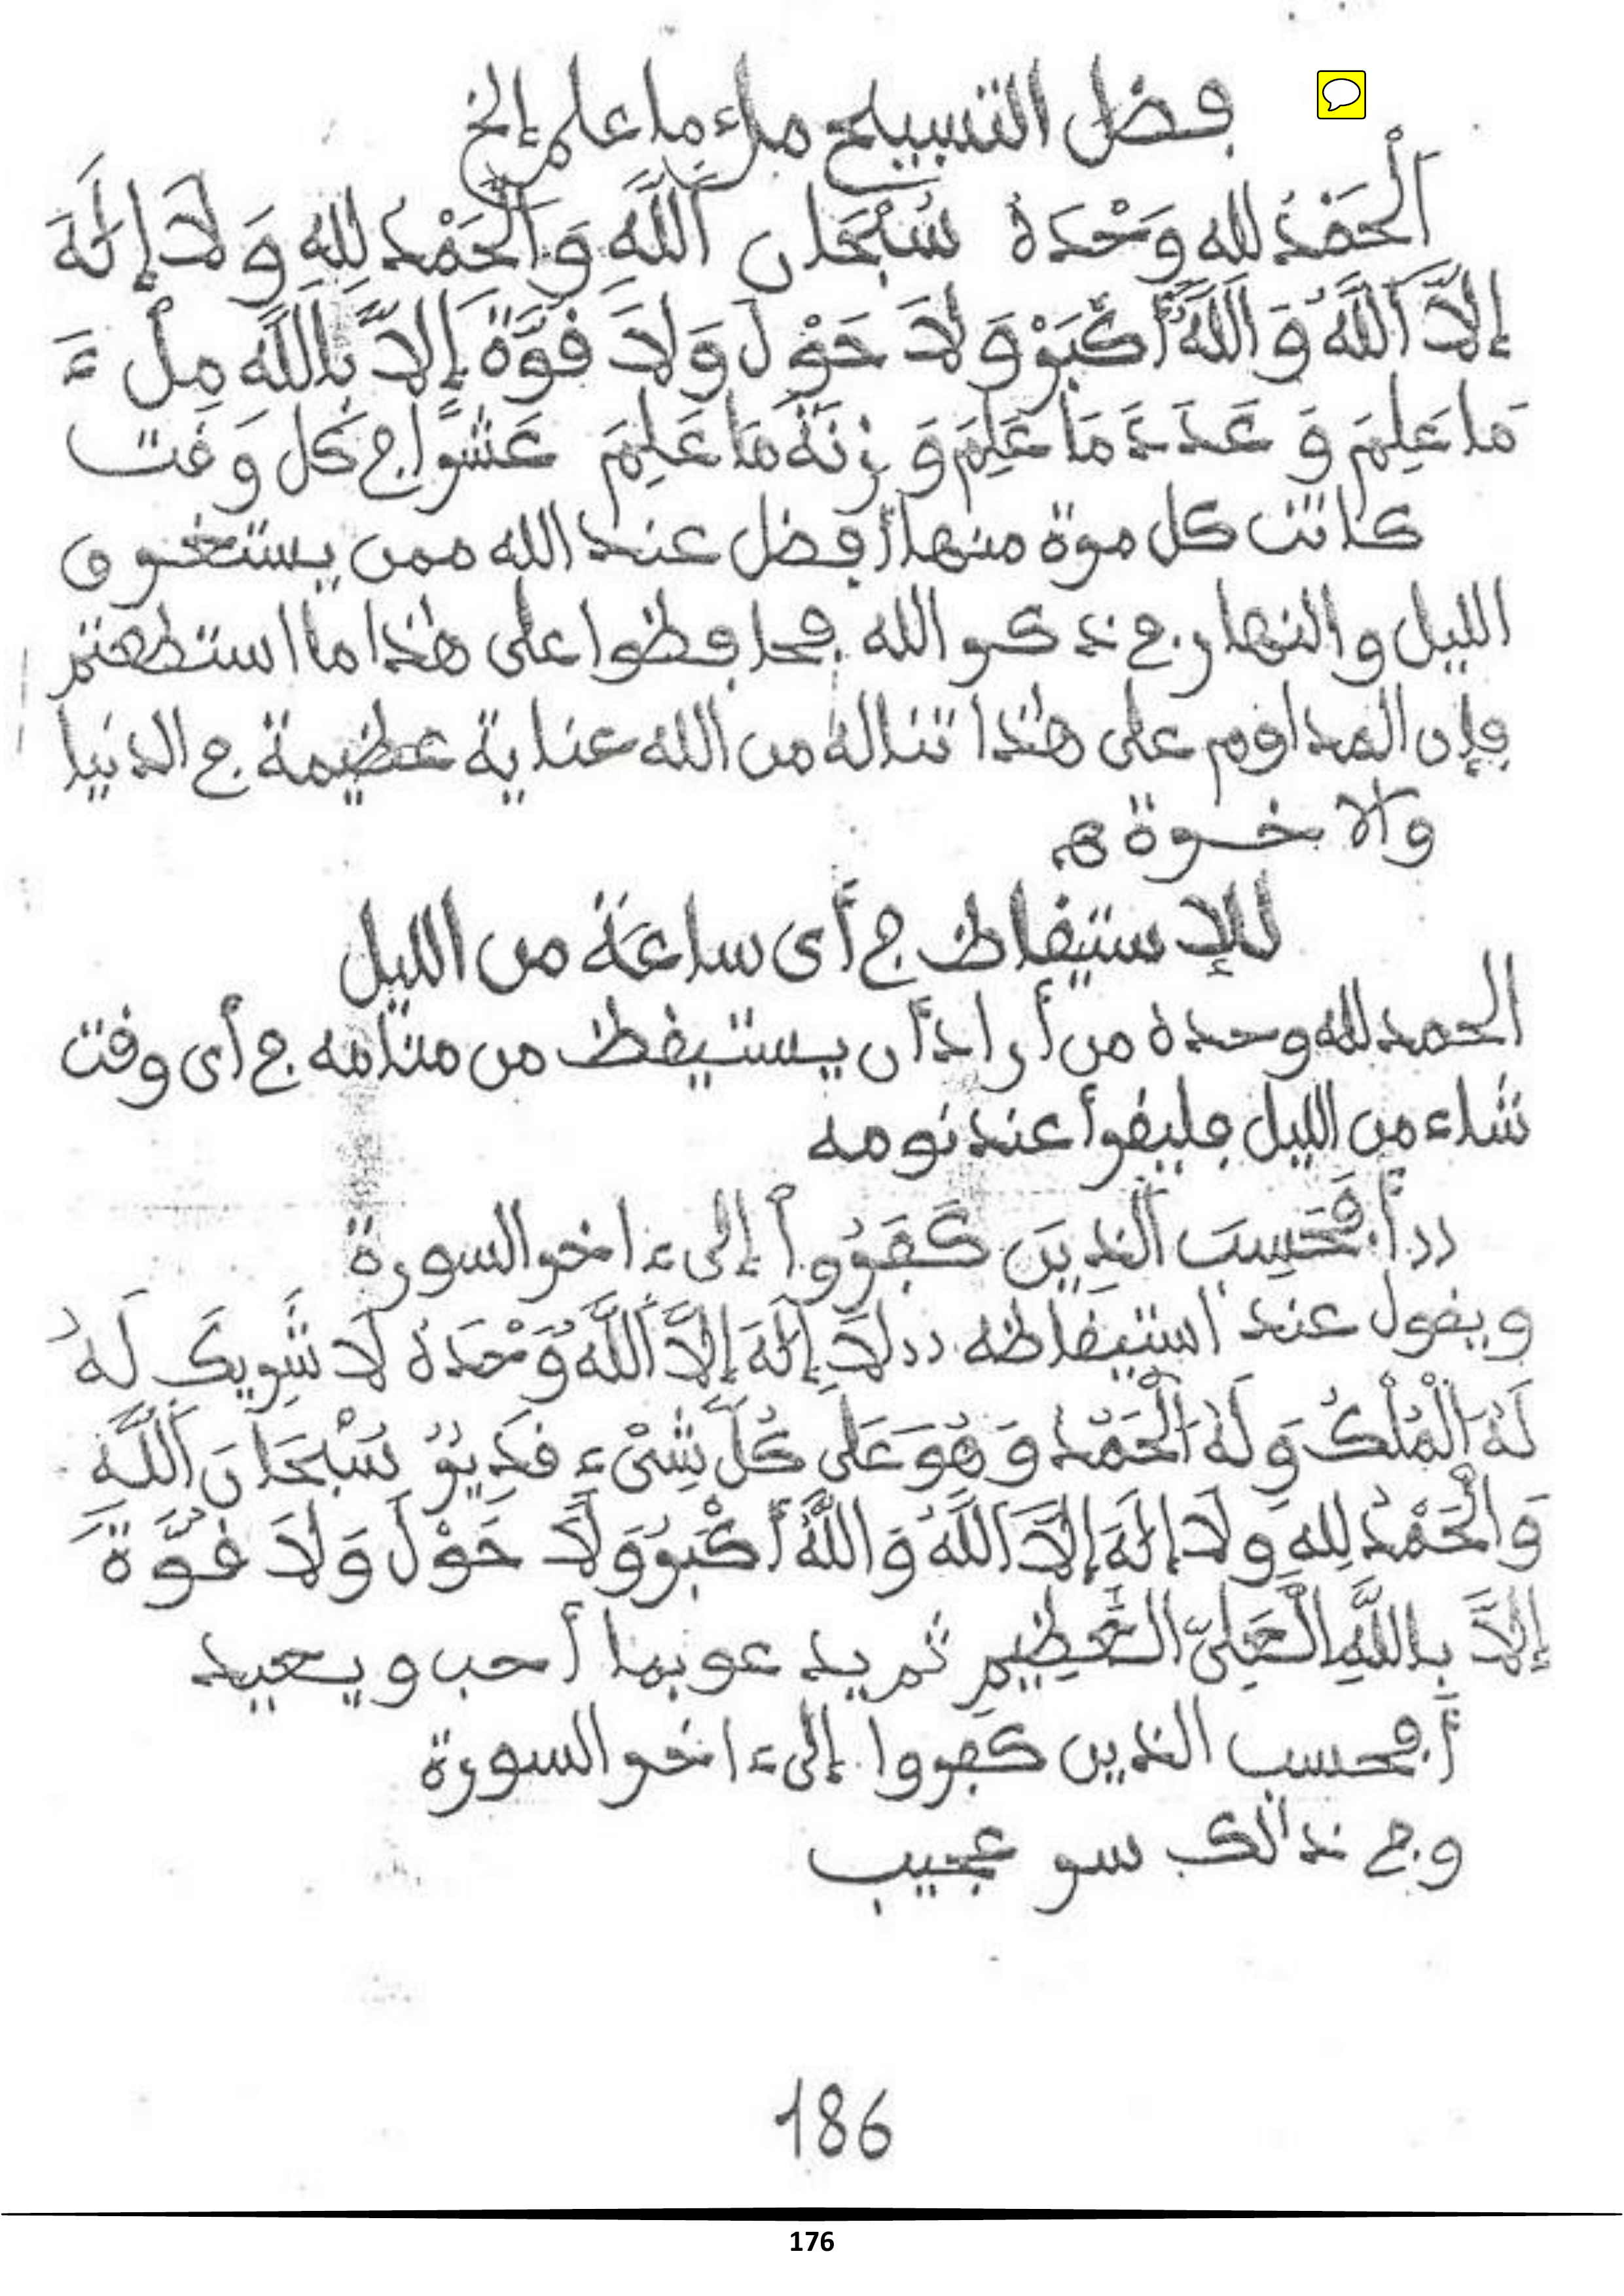 فضل التسبيح ملء ما علم إلخ
اَلْحَمْدُ لله وَحْدَهُ سُبْحَانَ اَللَّهِ وَالْحَمْدُ لِلهِ وَلَا إِلَهَ
إِلَّا اَللَّهُ وَاَللَّهُ أَكْبَرُ وَلَا حَوْلَ وَلَا قُوَّةَ إِلَّا بِاللَّهِ مِلْءَ
مَا عَلِمَ وَعَدَدَ مَا عَلِمَ وَزِنَةَ مَا عَلِمَ عَشْرًا في كل وَقت
كانت كل مرة منها أفضل عند الله ممن يستغرق
الليل والنهار في ذكر الله فحافظوا على هذا ما استطعتم
فإن المداوم على هذا تناله من الله عناية عظيمة في الدنيا
والآخرة هـ
للاستيقاظ في أي ساعة من الليل
الحمد لله وحده من أراد أن يستيقظ من منامه في أي وقت
شاء من الليل فليقرأ عند نومه
،،أَفَحَسِبَ اَلَّذِينَ كَفَرُوا إلى ءاخر السورة
ويقول عند استيقاظه ،،لَا إِلَهَ إِلَّا اَللَّهُ وَحْدَهُ لَا شَرِيكَ لَهُ
لَهُ اَلْمُلْكُ وَلَهُ اَلْحَمْدُ وَهُوَ عَلَى كُلِّ شَيْءٍ قَدِيرٌ سُبْحَانَ اَللَّهِ
وَالْحَمْدُ لِلهِ وَلَا إِلَهَ إِلَّا اَللَّهُ وَاللَّهُ أَكْبَرُ وَلَا حَوْلَ وَلَا قُوَّةَ
إِلَّا بِاللَّهِ الْعَلِيِّ الْعَظِيمِ ثم يدعو بما أحب ويعيد
أفحسب الذين كفروا إلى ءاخر السورة
وفي ذالك سر عجيب
186
176